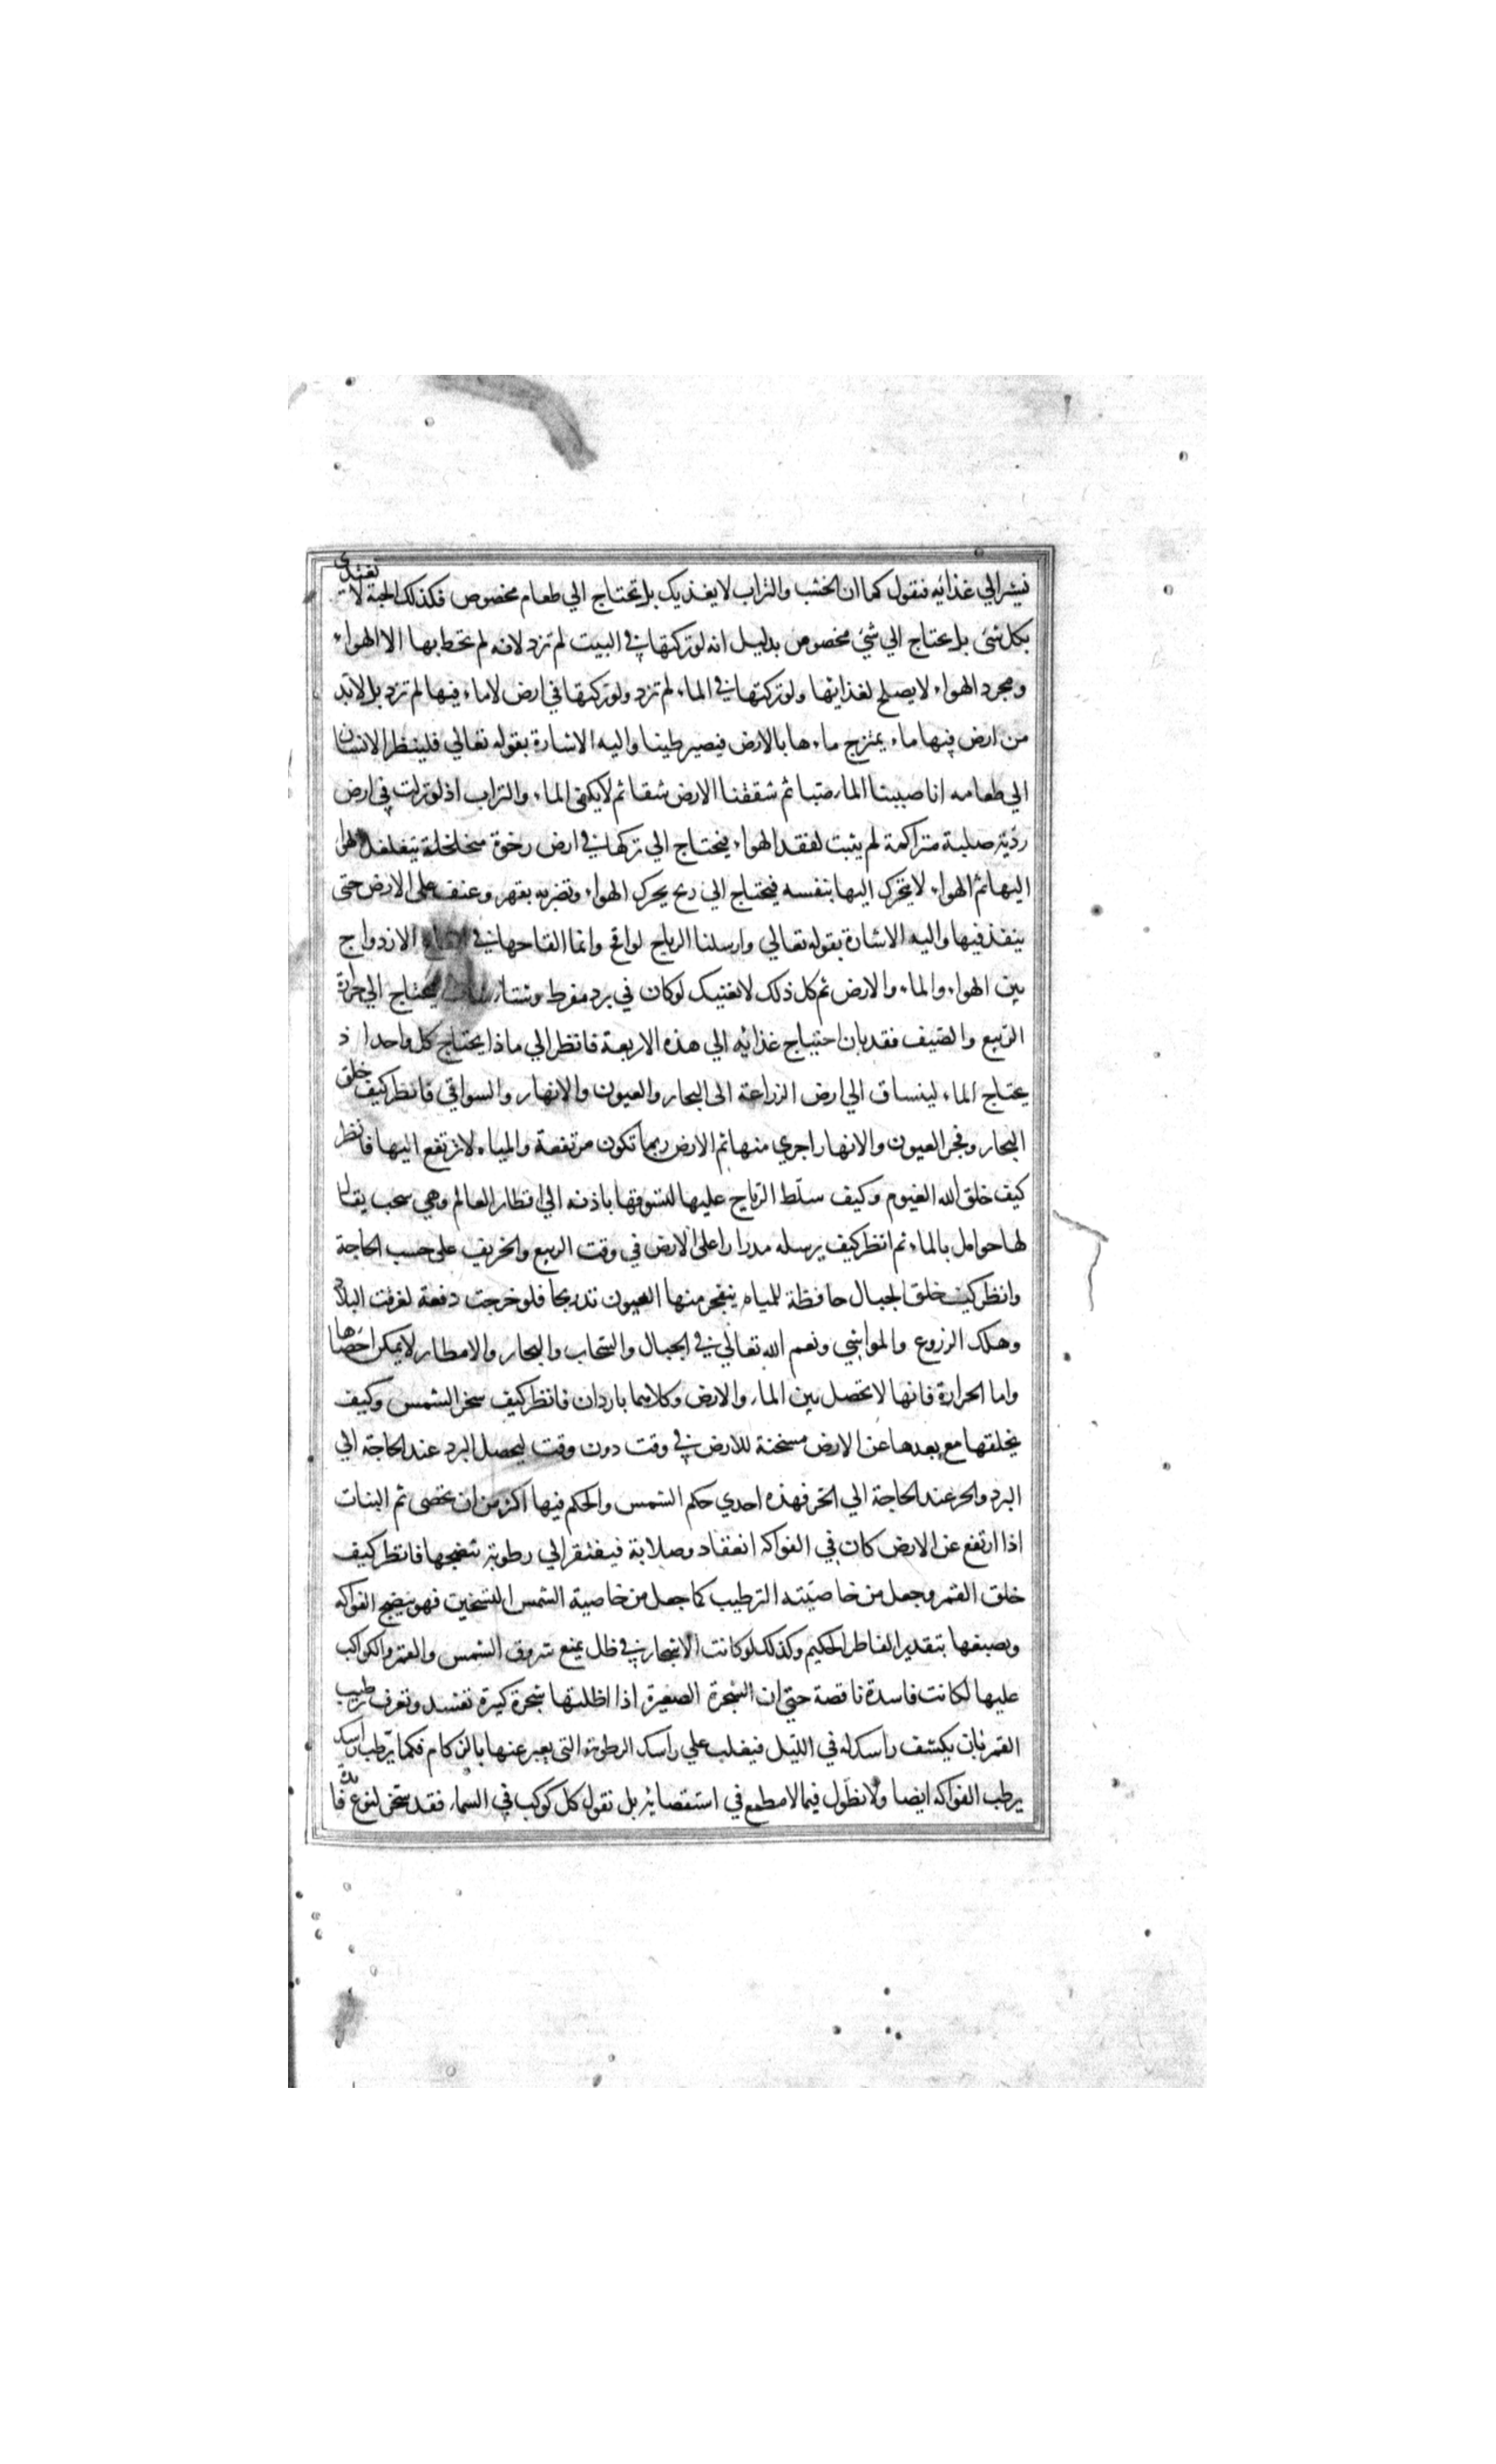 نشير الي غذائه فنقول كما ان الخشب والتراب لا يغذيك بل تحتاج الي طعام مخصوص فكذلك الحبة لا تغتذي
بكل شئ بل يحتاج الي شئ مخصوص بدليل انه لو تركتها في البيت لم تزد لانه لم تحط بها الا الهواء
ومجرد الهواء لا يصلح لغذائها ولو تركتها في الماء لم تزد ولو تركتها في ارض لا ماء فيها لم تزد بل لا بد
من ارض فيها ماء يمتزج ماءها بالارض فيصير طينا واليه الاشارة بقوله تعالي فلينظر الانسان
الي طعامه انا صببنا الماء صبا ثم شققنا الارض شقا ثم لا يكفي الماء والتراب اذ لو تركت في ارض
ردية صلبة متراكمة لم ينبت لفقد الهواء فيحتاج الي تركها في ارض رخوة متخلخلة يتغلغل الهوا
اليها ثم الهواء لا يتحرك اليها بنفسه فيحتاج الي ريح يحرك الهواء وتضربه بقهر وعنف على الارض حتى
ينفذ فيها واليه الاشارة بقوله تعالي وارسلنا الرياح لواقح وانما القاحها في الازدواج
بين الهواء والماء والارض ثم كل ذلك لا يغنيك لو كان في برد مفرط وشتاء فيحتاج الي حرارة
الربيع والصيف فقد بان احتياج غذائه الي هذه الاربعة فانظر الي ماذا يحتاج كل واحد اذ
يحتاج الماء لينساق الي ارض الزراعة الى البحار والعيون والانهار والسواقي فانظر كيف خلق
البحار وفجر العيون والانهار اجري منها ثم الارض ربما تكون مرتفعة والمياه لا ترتفع اليها فانظر
كيف خلق الله الغيوم وكيف سلّط الرّياح عليها لتسوقها باذنه الي اقطار العالم وهي سحب يقال
لها حوامل بالماء ثم انظر كيف يرسله مدرارا على الارض في وقت الربيع والخريف على حسب الحاجة
وانظر كيف خلق الجبال حافظة للمياه ينفجر منها العيون تدريجا فلو خرجت دفعة لغرقت البلاد
وهلك الزروع والمواشي ونعم الله تعالي في الجبال والسّحاب والبحار والامطار لا يمكن احصاها
واما الحرارة فانها لا تحصل بين الماء والارض وكلاهما باردان فانظر كيف سخر الشمس وكيف
يخلقها مع بعدها عن الارض مسخنة للارض في وقت دون وقت ليحصل البرد عند الحاجة الي
البرد والحر عند الحاجة الي الحر فهذه احدي حكم الشمس والحكم فيها اكثر من ان تحصى ثم النبات
اذا ارتفع عن الارض كان في الفواكه انعقاد وصلابة فيفتقر الي رطوبة تنضجها فانظر كيف
خلق القمر وجعل من خاصيّته الترطيب كما جعل من خاصية الشمس التسخين فهو ينضج الفواكه
ويصبغها بتقدير الفاطر الحكيم وكذلك لو كانت الاشجار في ظل يمنع شروق الشمس والقمر والكواكب
عليها لكانت فاسدة ناقصة حتي ان الشجرة الصغيرة اذا اظلتها شجرة كبيرة تفسد وتعرف ترطيب
القمر بان يكشف راسك له في الليل فيغلب علي راسك الرطوبة التي يعبر عنها بالزكام فكما يرّطب راسك
يرطب الفواكه ايضا ولا نطوّل فيما لا مطمع في استقصائه بل نقول كل كوكب في السماء فقد سخّر لنوع فائدة